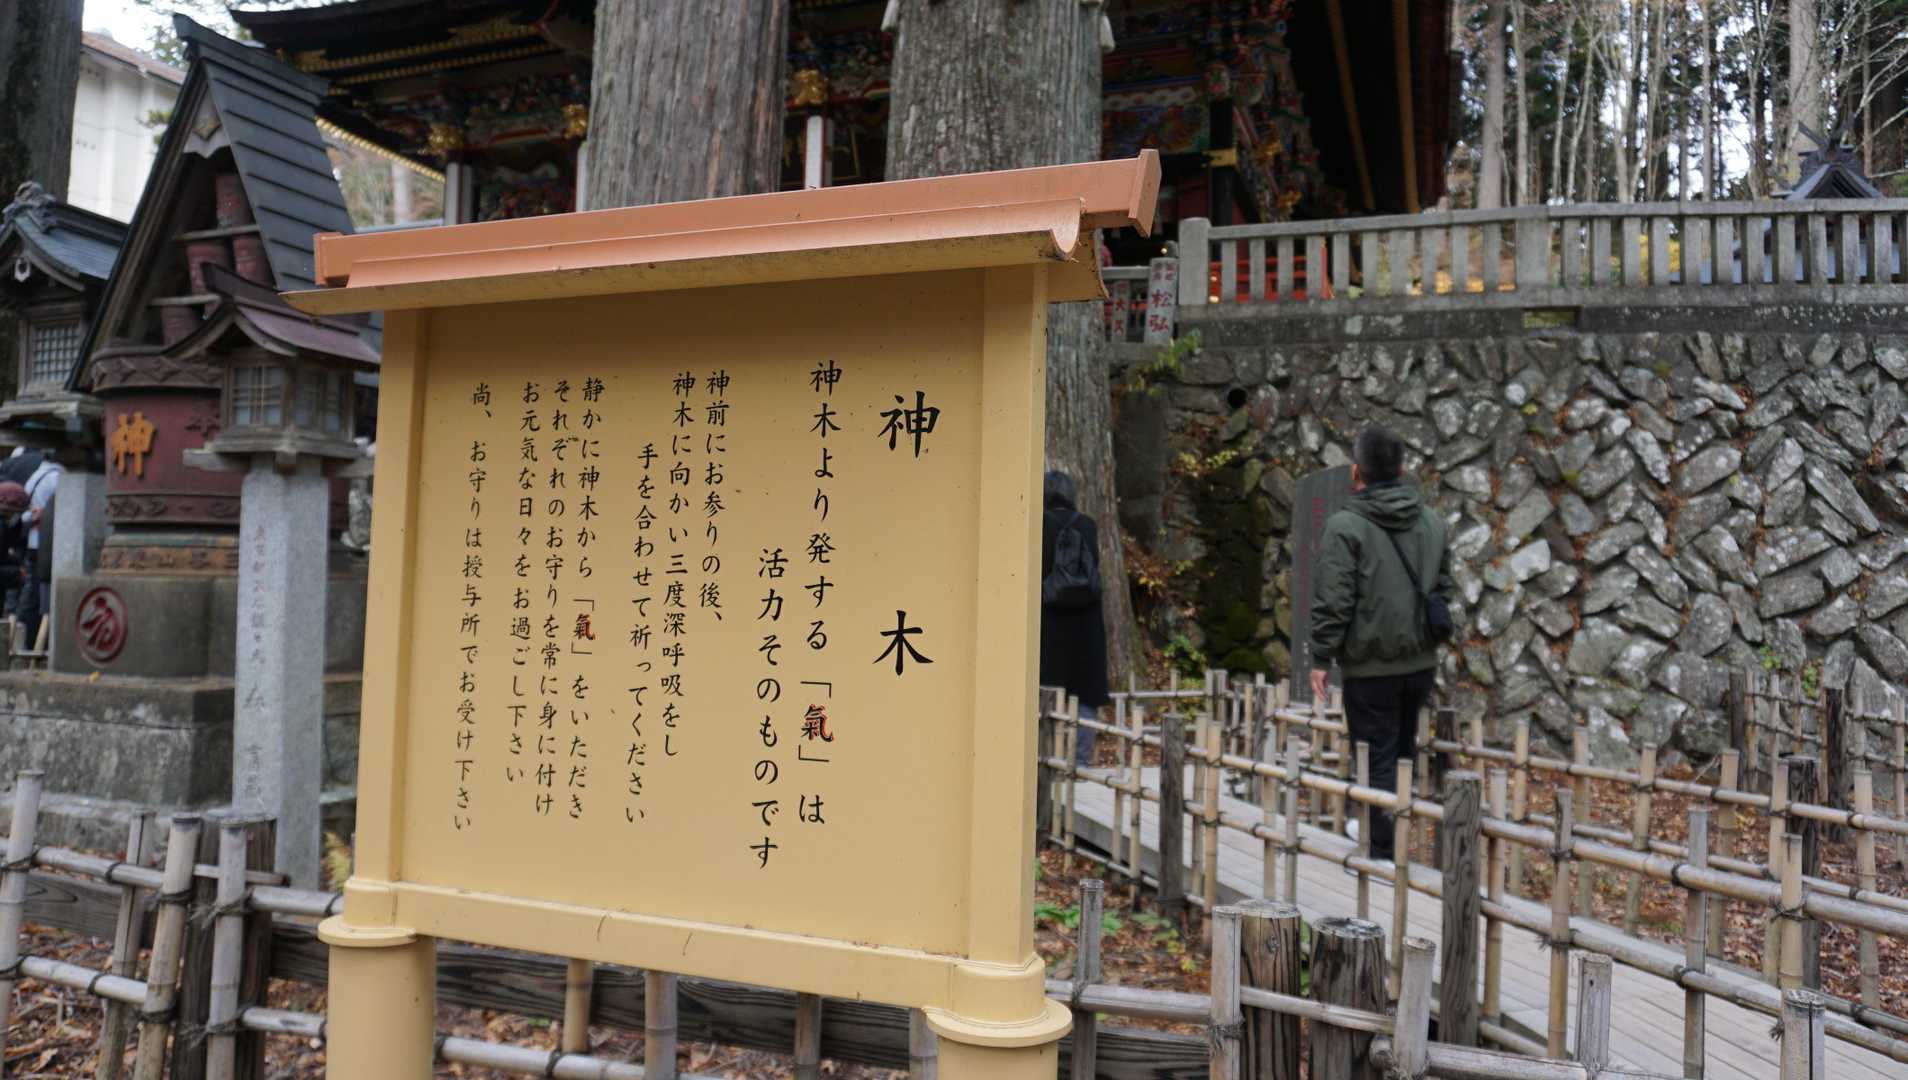 神木
神木より発する「氣」は
活力そのものです
神前にお参りの後、
神木に向かい三度深呼吸をし
手を合わせて祈ってください
静かに神木から「氣」をいただき
それぞれのお守りを常に身に付け
お元気な日々をお過ごし下さい
尚、お守りは授与所でお受け下さい
神
松弘